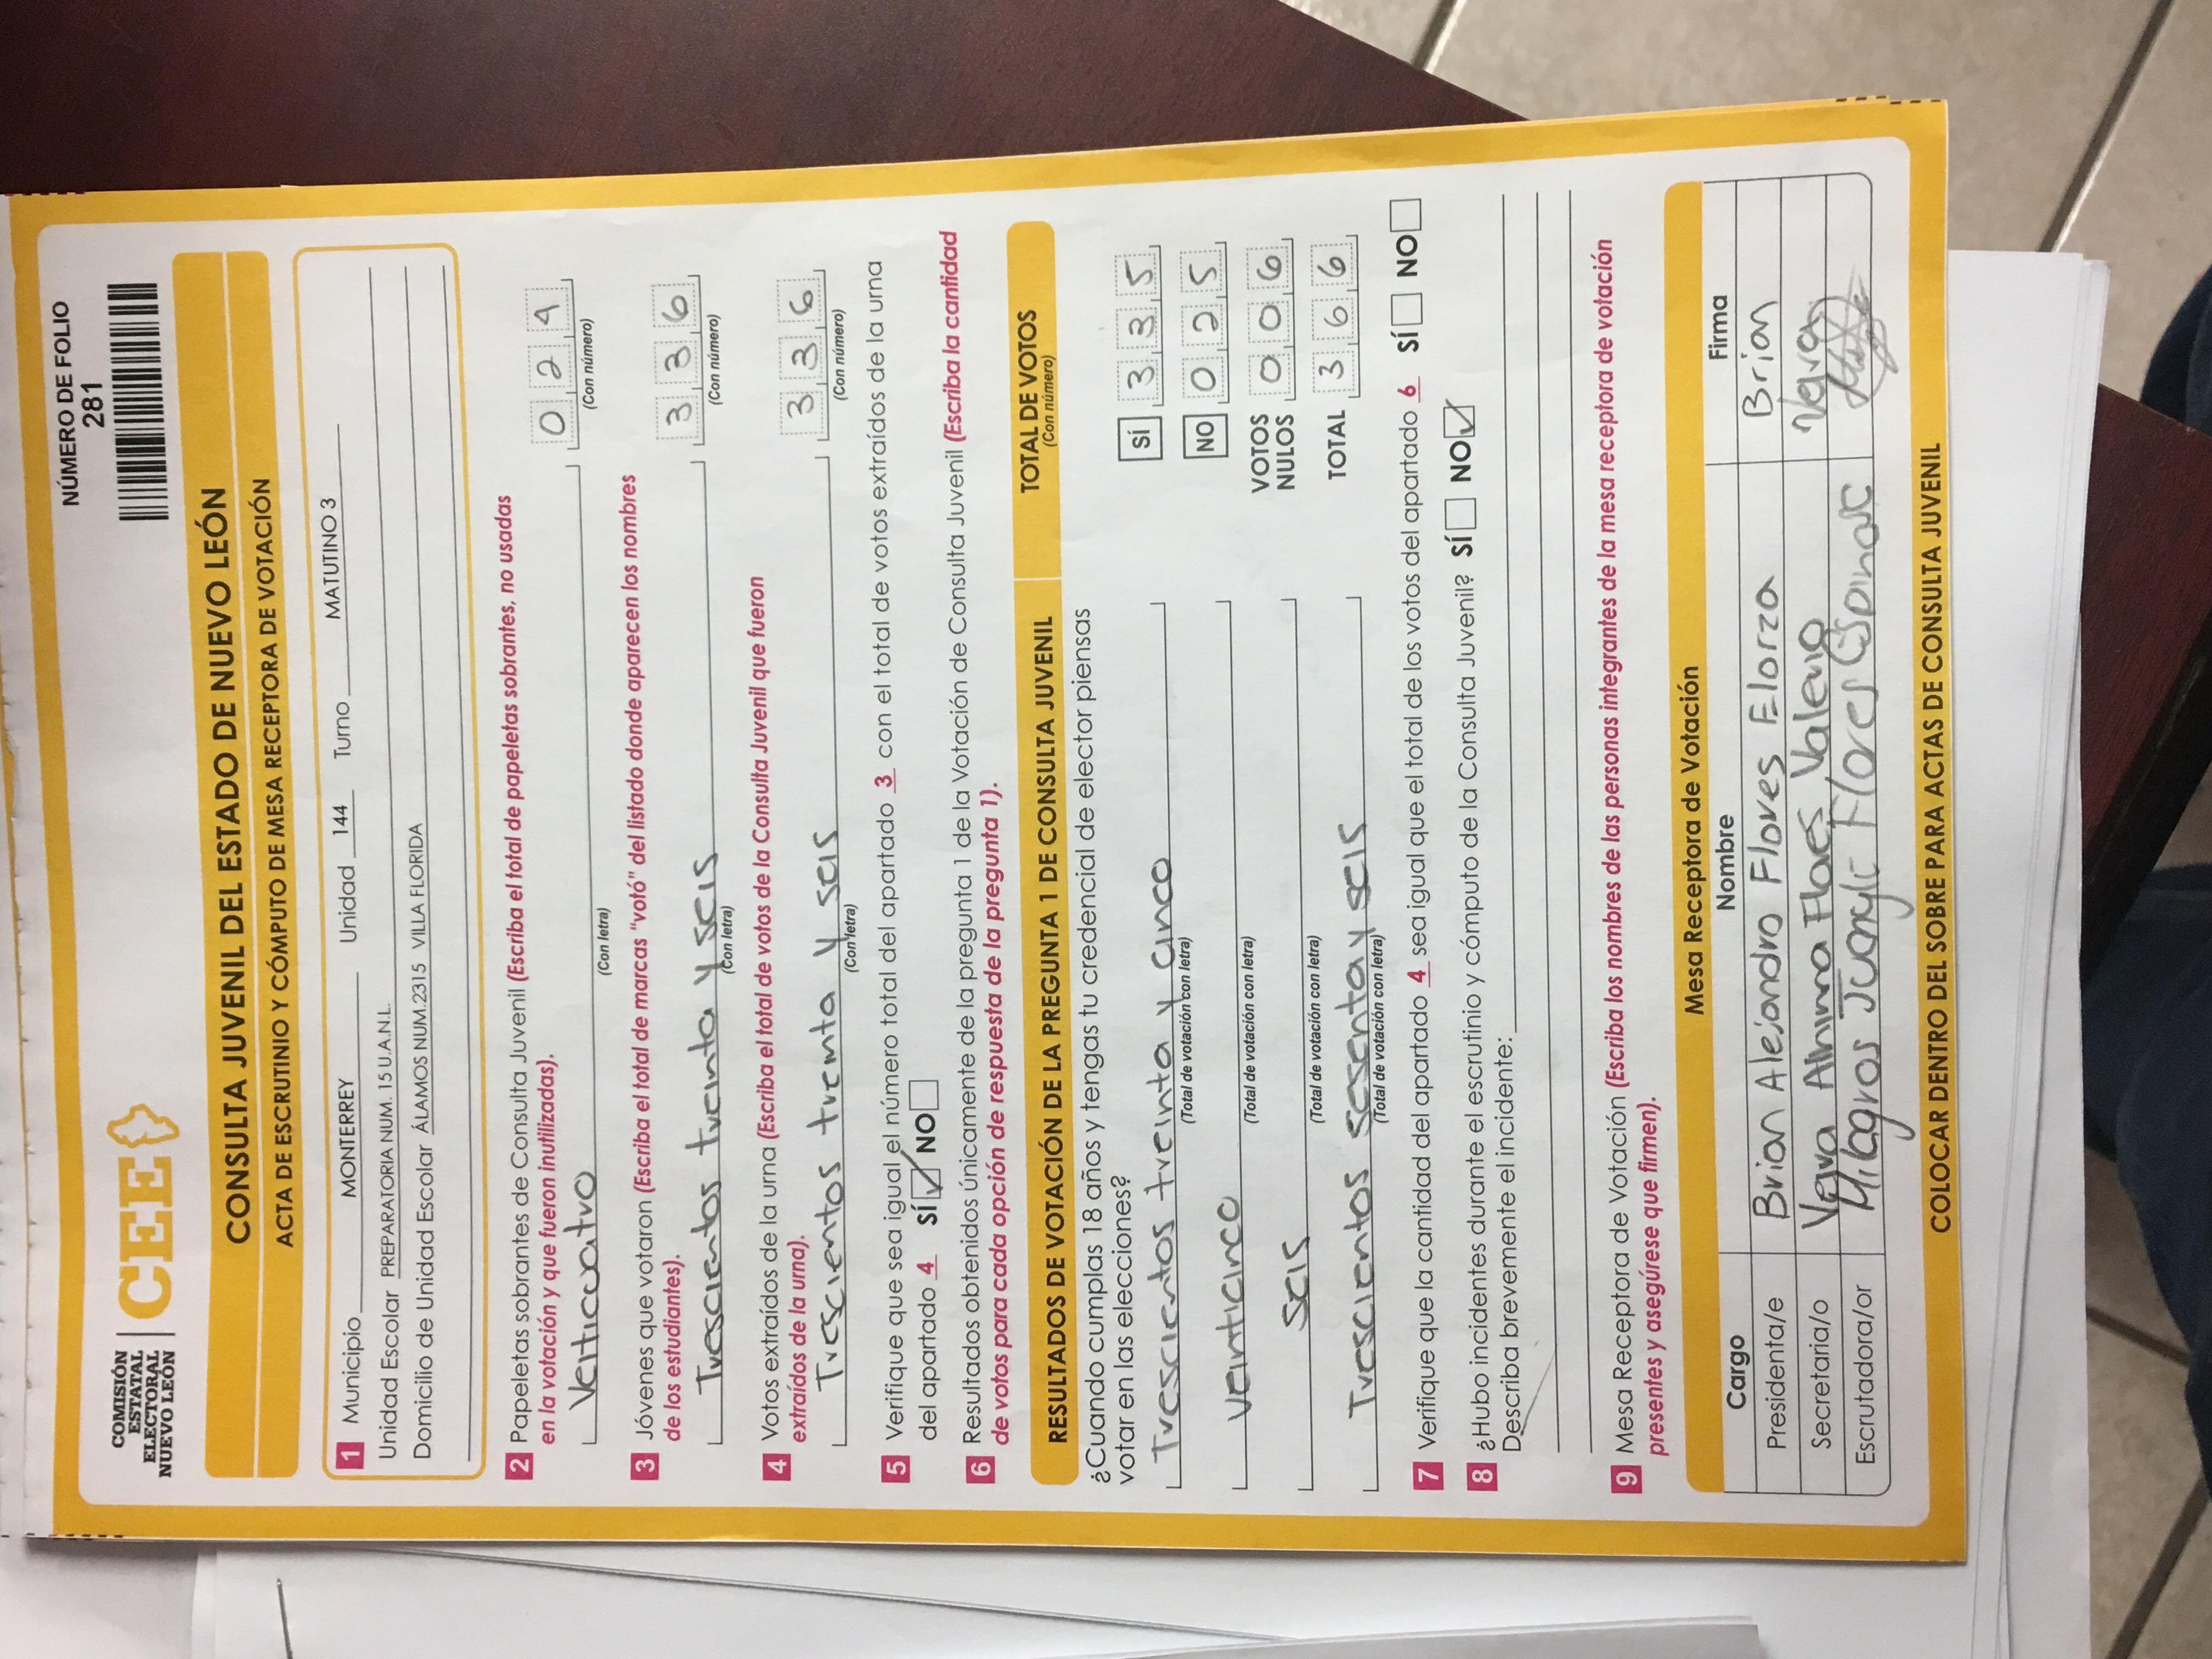 NÚMERO DE FOLIO
281
COMISIÓN
ESTATAL
ELECTORAL
NUEVO LEÓN
CEE
CONSULTA JUVENIL DEL ESTADO DE NUEVO LEÓN
ACTA DE ESCRUTINIO Y CÓMPUTO DE MESA RECEPTORA DE VOTACIÓN
1 Municipio MONTERREY Unidad 144 Turno MATUTINO 3
Unidad Escolar PREPARATORIA NUM. 15 U.A.N.L.
Domicilio de Unidad Escolar ÁLAMOS NUM.2315 VILLA FLORIDA
2 Papeletas sobrantes de Consulta Juvenil (Escriba el total de papeletas sobrantes, no usadas
en la votación y que fueron inutilizadas).
Veiticuatro 0 2 4
(Con letra) (Con número)
3 Jóvenes que votaron (Escriba el total de marcas "votó" del listado donde aparecen los nombres
de los estudiantes).
Trescientos treinta y seis 3 3 6
(Con letra) (Con número)
4 Votos extraídos de la urna (Escriba el total de votos de la Consulta Juvenil que fueron
extraídos de la urna).
Trescientos treinta y seis 3 3 6
(Con letra) (Con número)
5 Verifique que sea igual el número total del apartado 3 con el total de votos extraídos de la urna
del apartado 4 SÍ NO
6 Resultados obtenidos únicamente de la pregunta 1 de la Votación de Consulta Juvenil (Escriba la cantidad
de votos para cada opción de respuesta de la pregunta 1).
RESULTADOS DE VOTACIÓN DE LA PREGUNTA 1 DE CONSULTA JUVENIL TOTAL DE VOTOS
(Con número)
¿Cuando cumplas 18 años y tengas tu credencial de elector piensas
votar en las elecciones?
Trescientos treinta y cinco SÍ 3 3 5
(Total de votación con letra)
veinticinco NO 0 2 5
(Total de votación con letra)
seis VOTOS NULOS 0 0 6
(Total de votación con letra)
Trescientos sesenta y seis TOTAL 3 6 6
(Total de votación con letra)
7 Verifique que la cantidad del apartado 4 sea igual que el total de los votos del apartado 6 SÍ NO
8 ¿Hubo incidentes durante el escrutinio y cómputo de la Consulta Juvenil? SÍ NO
Describa brevemente el incidente:
9 Mesa Receptora de Votación (Escriba los nombres de las personas integrantes de la mesa receptora de votación
presentes y asegúrese que firmen).
Mesa Receptora de Votación
Cargo Nombre Firma
Presidenta/e Brian Alejandro Flores Elorza Brian
Secretaria/o Flores
Escrutadora/or Milagros Flores
COLOCAR DENTRO DEL SOBRE PARA ACTAS DE CONSULTA JUVENIL